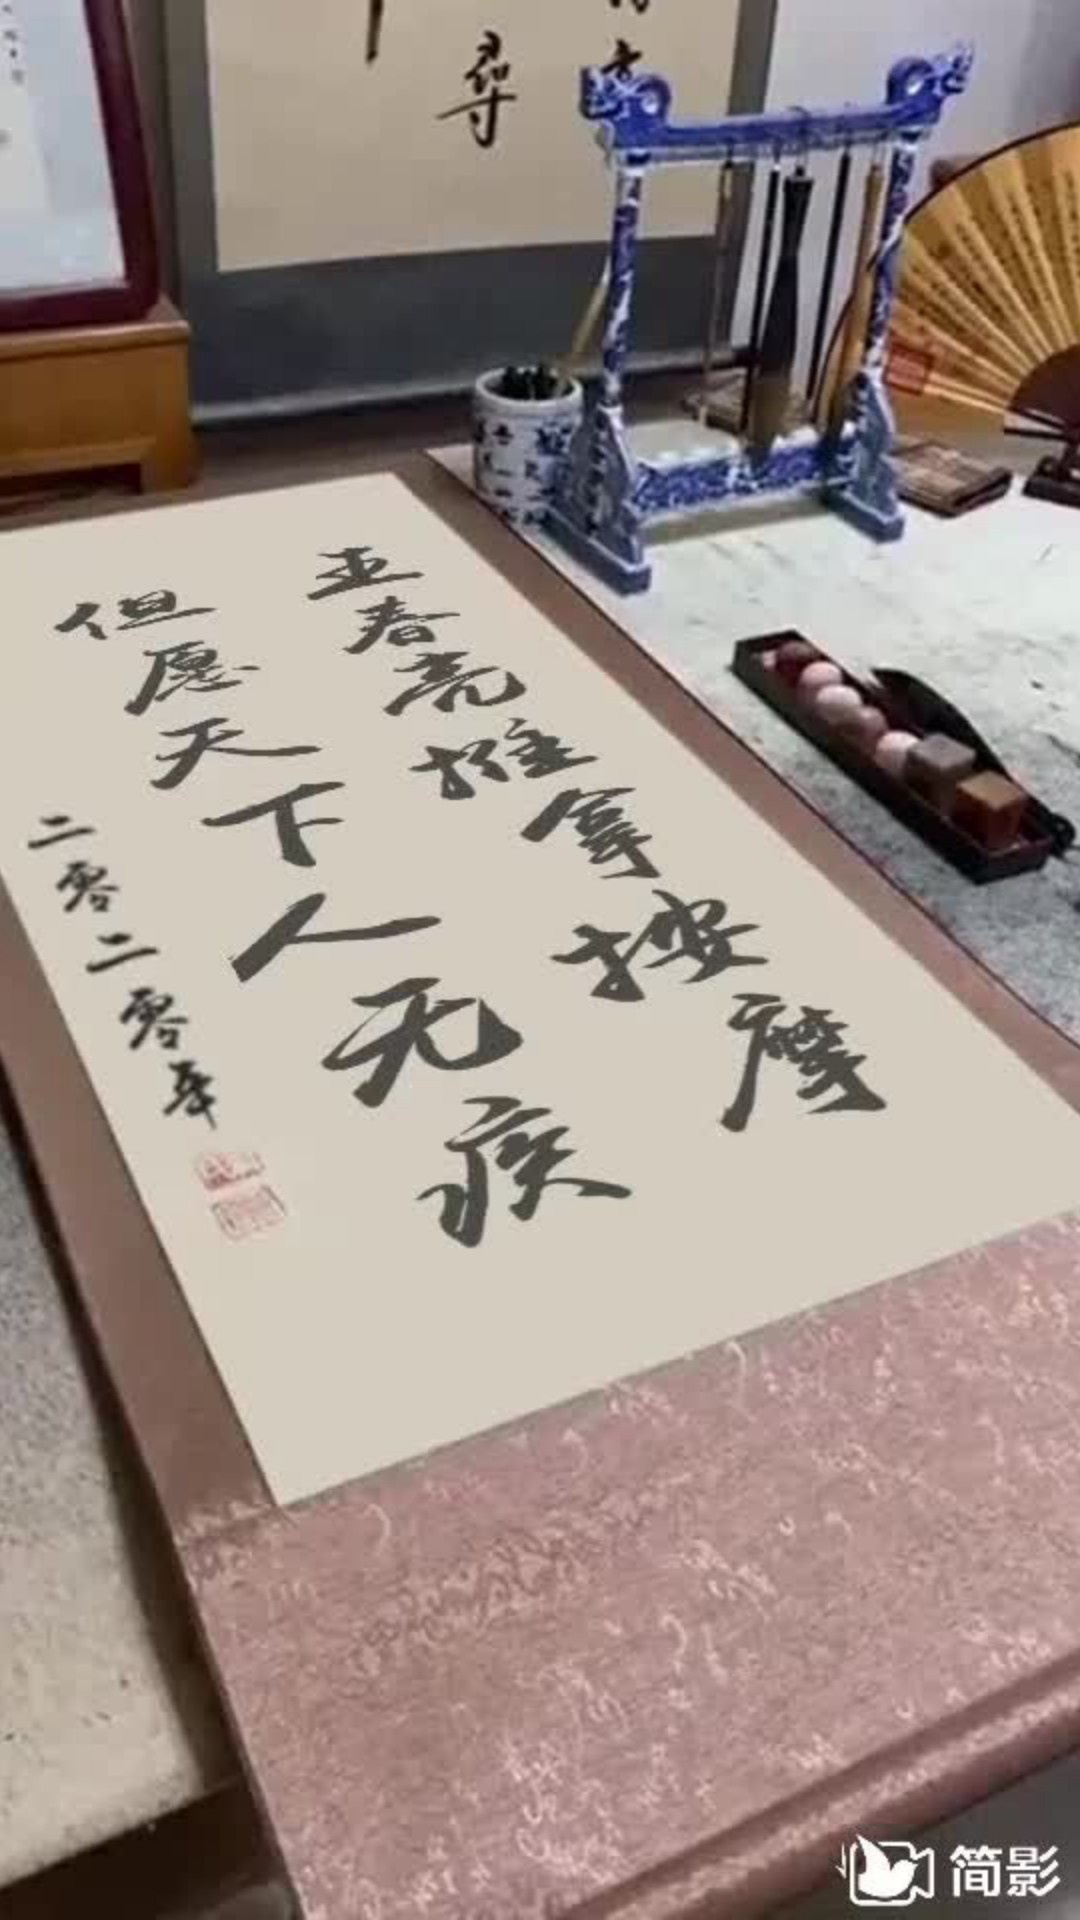 王春亮推拿按摩
但愿天下人无疾
二零二零年
尋
简影